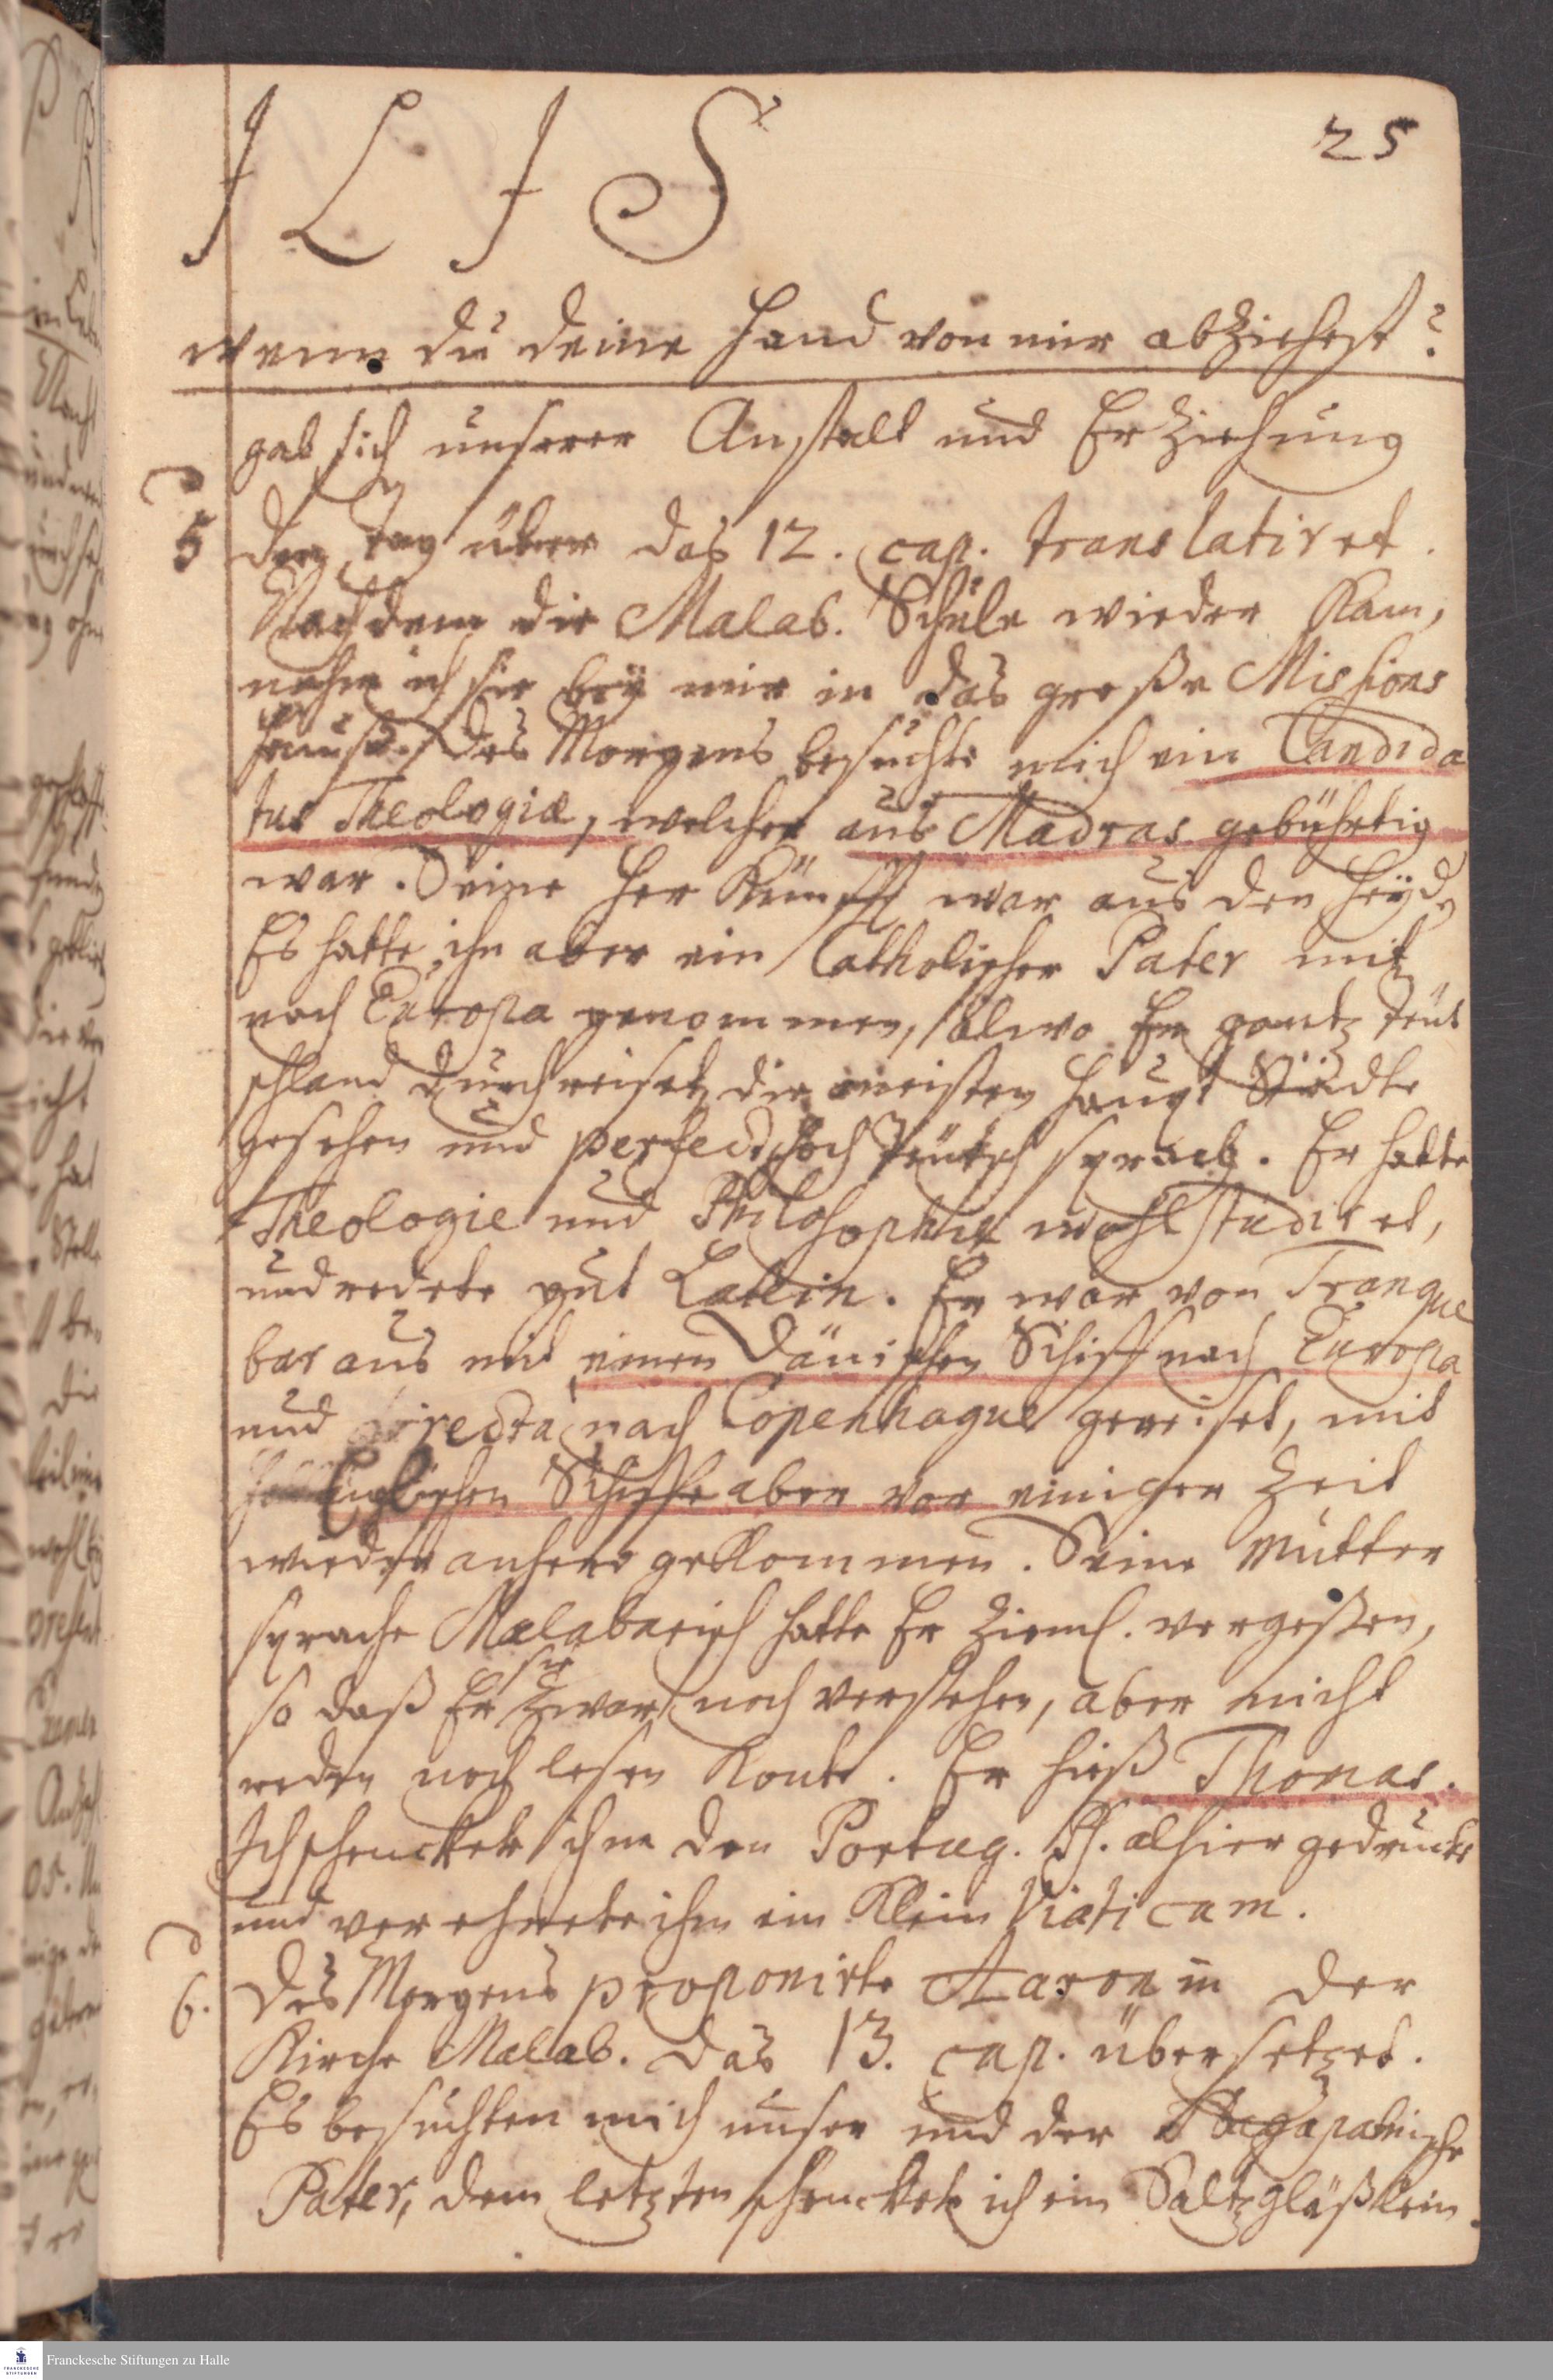 I L I S
25
wenn du deine Hand von mir abziehest?
gab sich unserer Anstalt und Erziehung
5 den tag über das 12. cap. translatiret.
Nachdem die Malab. Schule wieder kam,
nahm ich sie bey mir in das große Missions
Hauße. Des Morgens besuchte mich ein Candida
tus Theologiæ, welcher aus Madras gebührtig
war. Seine Her Kunfft war aus den Heyden
Es hatte ihn aber ein Catholischer Pater mit
nach Europa genommen, alwo Er gantz Teut
schland durchreiset, die meisten Haupt Städte
gesehen und perfect Hoch Teutsch sprach. Er hatte
Theologie und Philosophie wohl studiret,
und redete gut Latein. Er war von Tranque
bar aus mit einen Dänischen Schiff nach Europa
und directa nach Copenhague gereiset, mit
Englischen Schiffe aber vor einiger Zeit
wieder anhero gekommen. Seine Mutter
sprache Malabarisch hatte Er Zieml. vergeßen,
so daß Er sie zwar noch verstehen, aber nicht
reden noch lesen konte. Er hieß Thomas.
Ich schenckete ihm den Portug. Ps. alhier gedruckt
und verehrete ihm ein klein Viaticum.
6. Des Morgens proponirte Aaron in der
Kirche Malab. das 13. cap. übersetzet.
Es besuchten mich unser und der
Pater, dem letzten schenckete ich ein Saltzgläßlein.
Franckesche Stiftungen zu Halle